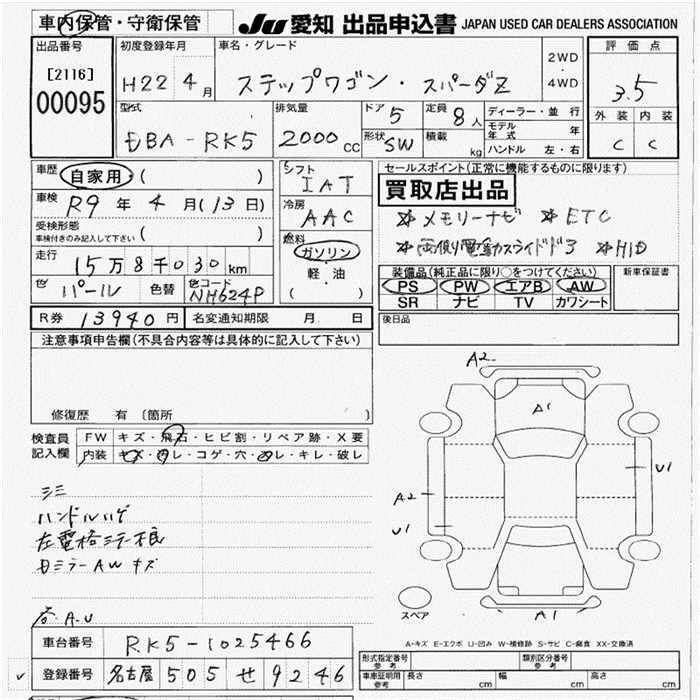 車内保管・守衛保管
JU 愛知 出品申込書 JAPAN USED CAR DEALERS ASSOCIATION
出品番号
[2116]
00095
初度登録年月
H22 4月
車名・グレード
ステップワゴン・スパーダZ
2WD
・
4WD
評価点
3.5
外装 内装
C C
型式
DBA-RK5
排気量
2000cc
ドア 5
形状 SW
定員 8人
積載 kg
ディーラー・並行
モデル年式 年
ハンドル 左・右
車歴 自家用・( )
車検 R9年4月(13日)
受検形態
車検付きのみ記入して下さい ( )
走行 15万8千030km
色 パール 色替 色コード NH624P
シフト
IAT
冷房
AAC
燃料
ガソリン
軽・油
( )
セールスポイント(正常に機能するものに限ります)
買取店出品
☆メモリーナビ ☆ETC
☆両側電動スライドドア ☆HID
装備品(純正品に限り○をつけてください)
PS PW エアB AW
SR ナビ TV カワシート
新車保証書
後日品
R券 13940円 名変通知期限 月 日
注意事項申告欄(不具合内容等は具体的に記入して下さい)
修復歴 有 〔箇所
検査員
記入欄
FW キズ・飛石・ヒビ割・リペア跡・X要
内装 キズ・汚レ・コゲ・穴・スレ・キレ・破レ
シミ
ハンドルハゲ
左電格ミラー根
ミラーAWキズ
A.U
A2
A1
U1
A2
U1
スペア
A1
A-キズ E-エクボ U-凹み W-補修跡 S-サビ C-腐食 XX-交換済
車台番号 RK5-1025466
登録番号 名古屋 505 せ 9246
形式指定番号
参考
類別区分番号
参考
車庫証明用
参考
長さ cm 幅 cm 高さ cm